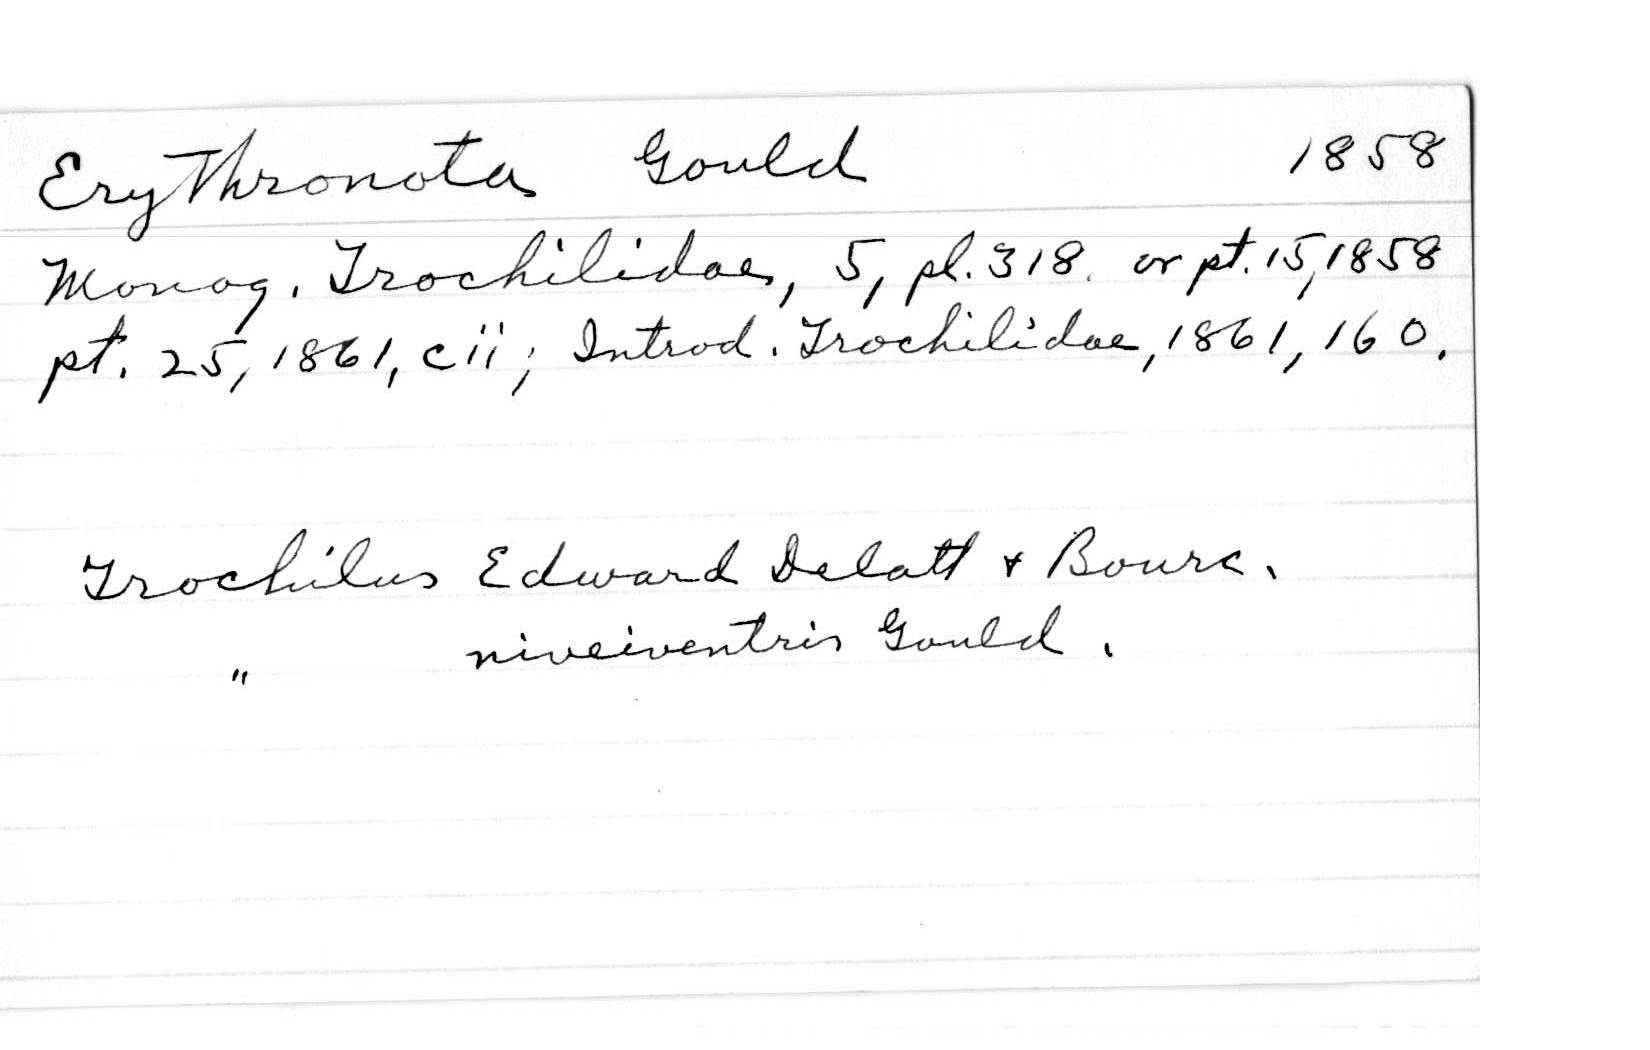 Erythronota Gould 1858
Monog. Trochilidae, 5, pl. 318. or pt. 15, 1858
pt. 25, 1861, cii; Introd. Trochilidae, 1861, 160.
Trochilus Edward Delatt & Bourc.
" niveiventris Gould.